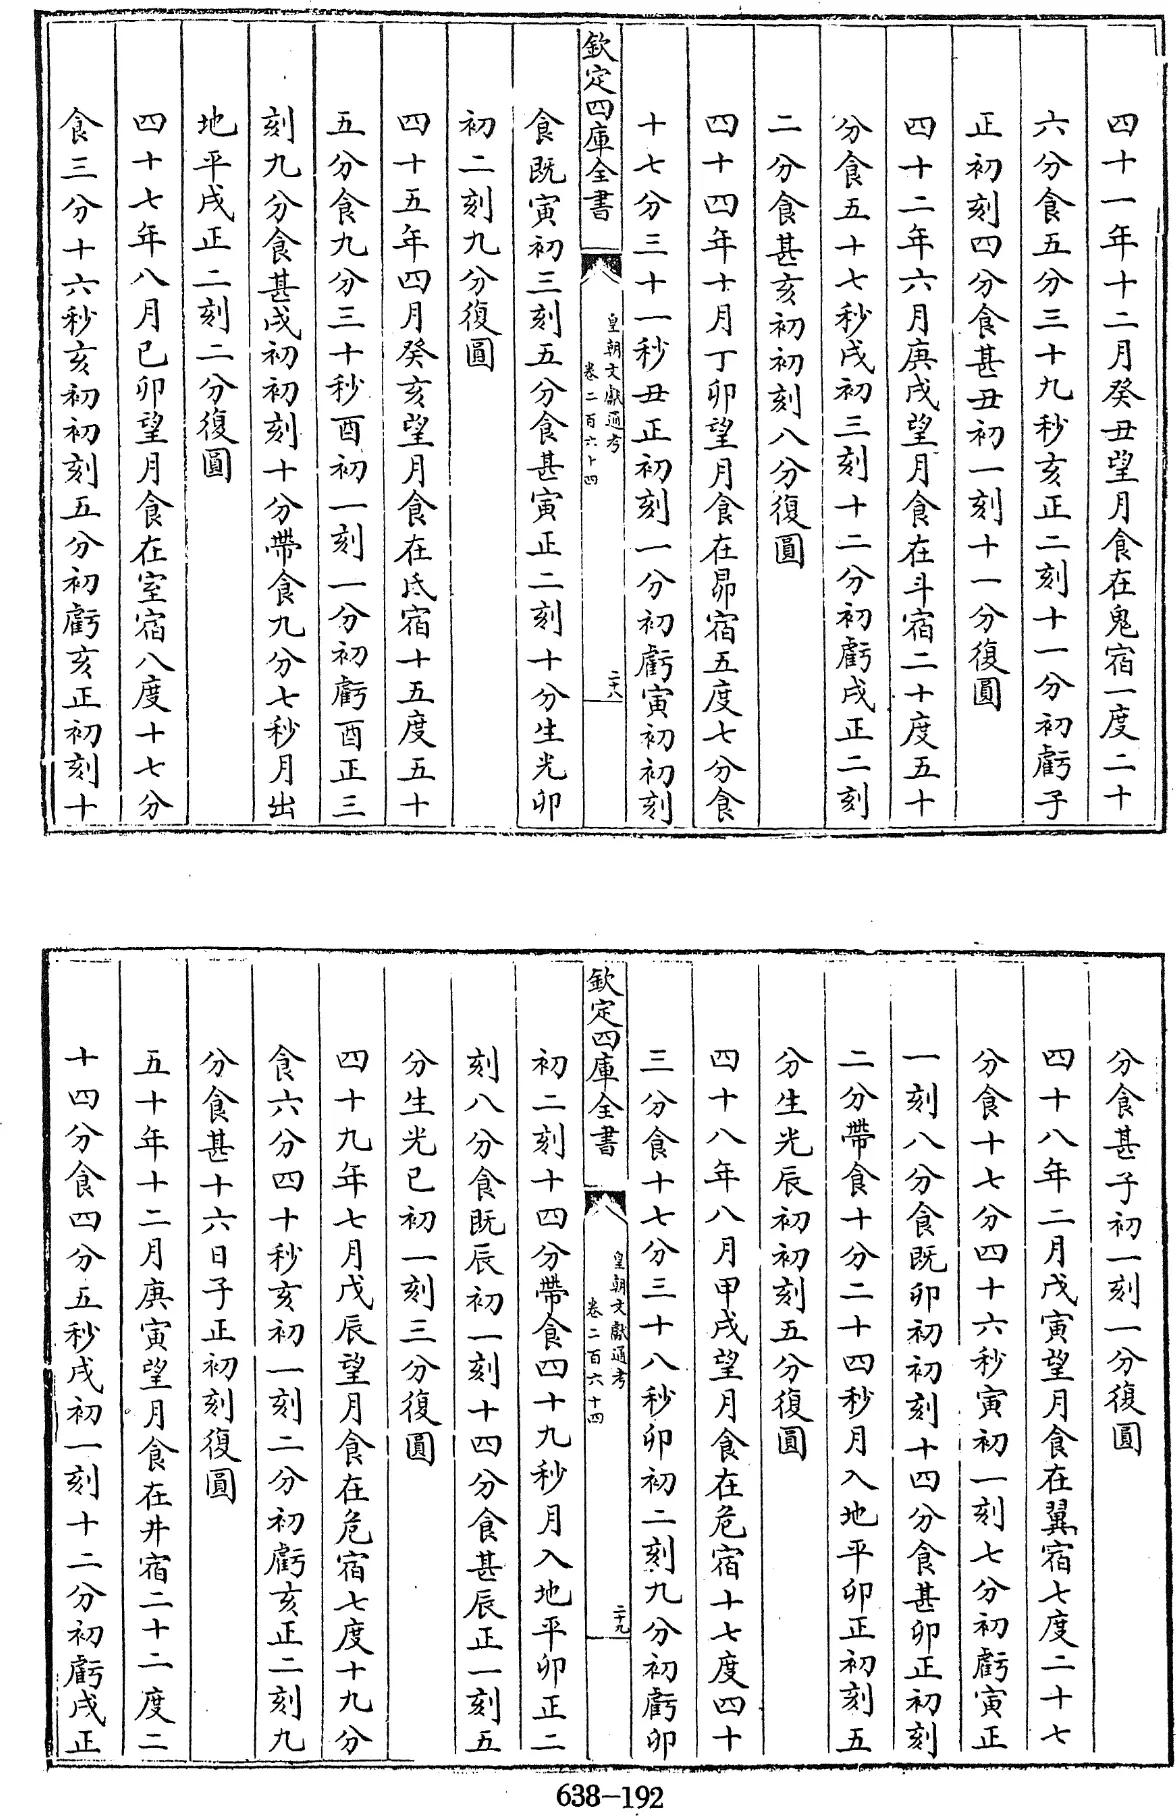 四十一年十二月癸丑望月食在鬼宿一度二十
六分食五分三十九秒亥正二刻十一分初虧子
正初刻四分食甚丑初一刻十一分復圓
四十二年六月庚戌望月食在斗宿二十度五十
分食五十七秒戌初三刻十二分初虧戌正二刻
二分食甚亥初初刻八分復圓
四十四年十月丁卯望月食在昴宿五度七分食
十七分三十一秒丑正初刻一分初虧寅初初刻
欽定四庫全書
皇朝文獻通考
卷二百六十四
二十八
食既寅初三刻五分食甚寅正二刻十分生光卯
初二刻九分復圓
四十五年四月癸亥望月食在氐宿十五度五十
五分食九分三十秒酉初一刻一分初虧酉正三
刻九分食甚戌初初刻十分帶食九分七秒月出
地平戌正二刻二分復圓
四十七年八月己卯望月食在室宿八度十七分
食三分十六秒亥初初刻五分初虧亥正初刻十
分食甚子初一刻一分復圓
四十八年二月戊寅望月食在翼宿七度二十七
分食十七分四十六秒寅初一刻七分初虧寅正
一刻八分食既卯初初刻十四分食甚卯正初刻
二分帶食十分二十四秒月入地平卯正初刻五
分生光辰初初刻五分復圓
四十八年八月甲戌望月食在危宿十七度四十
三分食十七分三十八秒卯初二刻九分初虧卯
欽定四庫全書
皇朝文獻通考
卷二百六十四
二十九
初二刻十四分帶食四十九秒月入地平卯正二
刻八分食既辰初一刻十四分食甚辰正一刻五
分生光巳初一刻三分復圓
四十九年七月戊辰望月食在危宿七度十九分
食六分四十秒亥初一刻二分初虧亥正二刻九
分食甚十六日子正初刻復圓
五十年十二月庚寅望月食在井宿二十二度二
十四分食四分五秒戌初一刻十二分初虧戌正
638-192